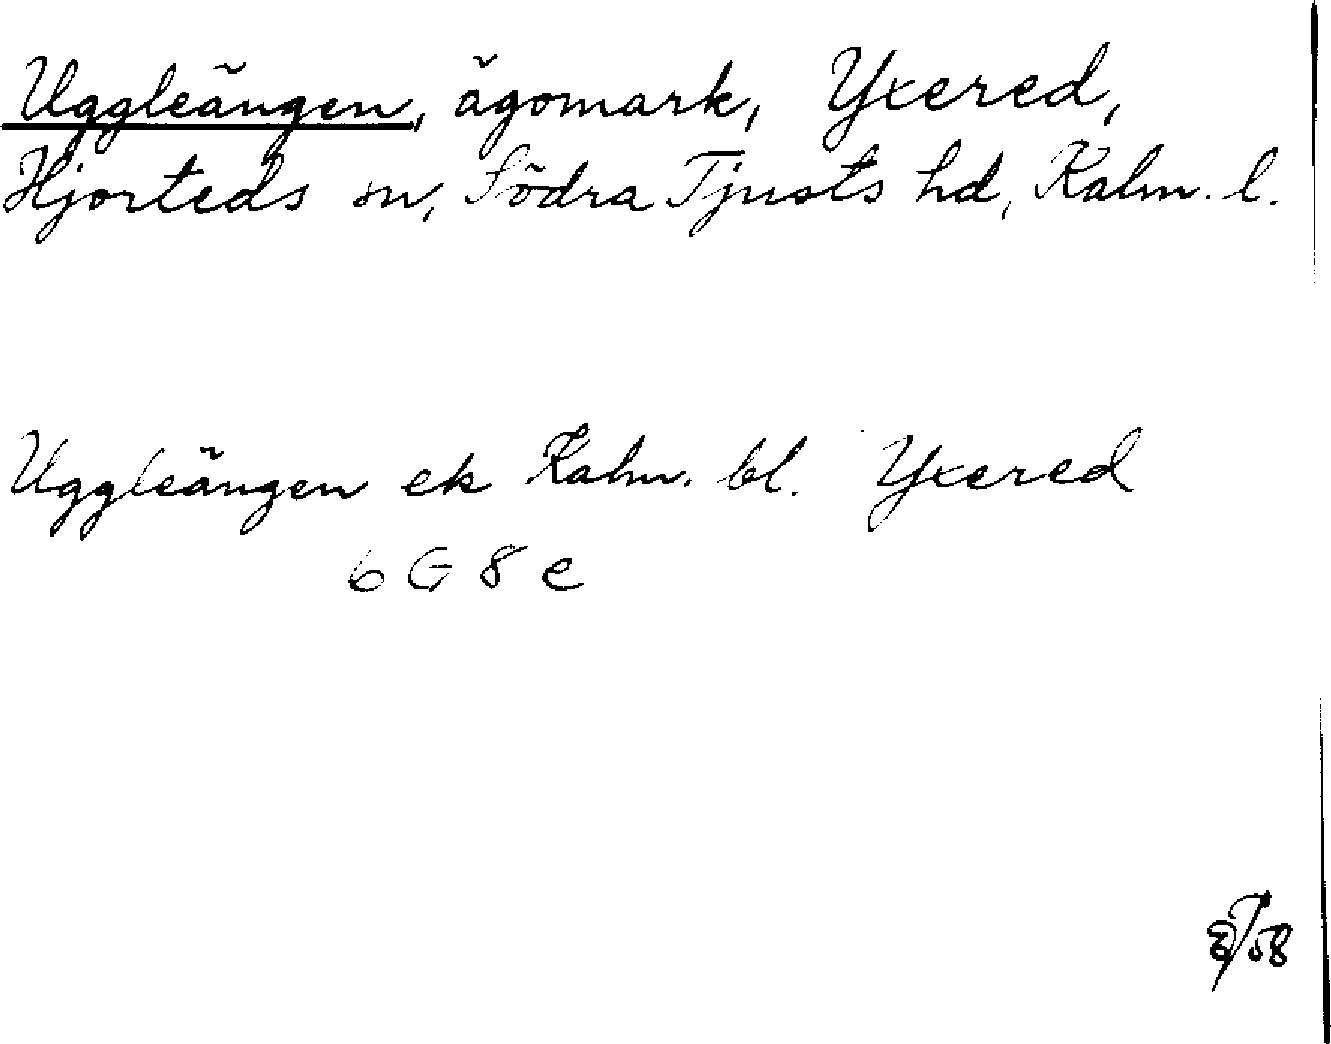 Uggleängen, ägomark, Yxered,
Hjorteds sn, Södra Tjusts hd, Kalm. l.
Uggleängen ek Kalm. bl. Yxered
6 G 8 e